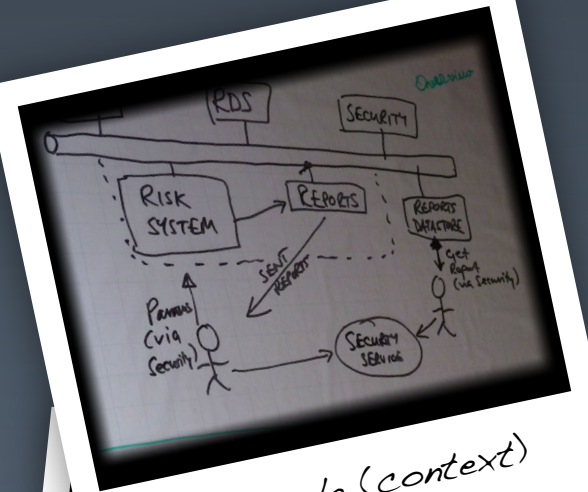 Overview
RDS
SECURITY
RISK
SYSTEM
REPORTS
REPORTS
DATASTORE
SENT
REPORTS
Get
Report
(via Security)
Params
(via
Security)
SECURITY
SERVICE
(context)